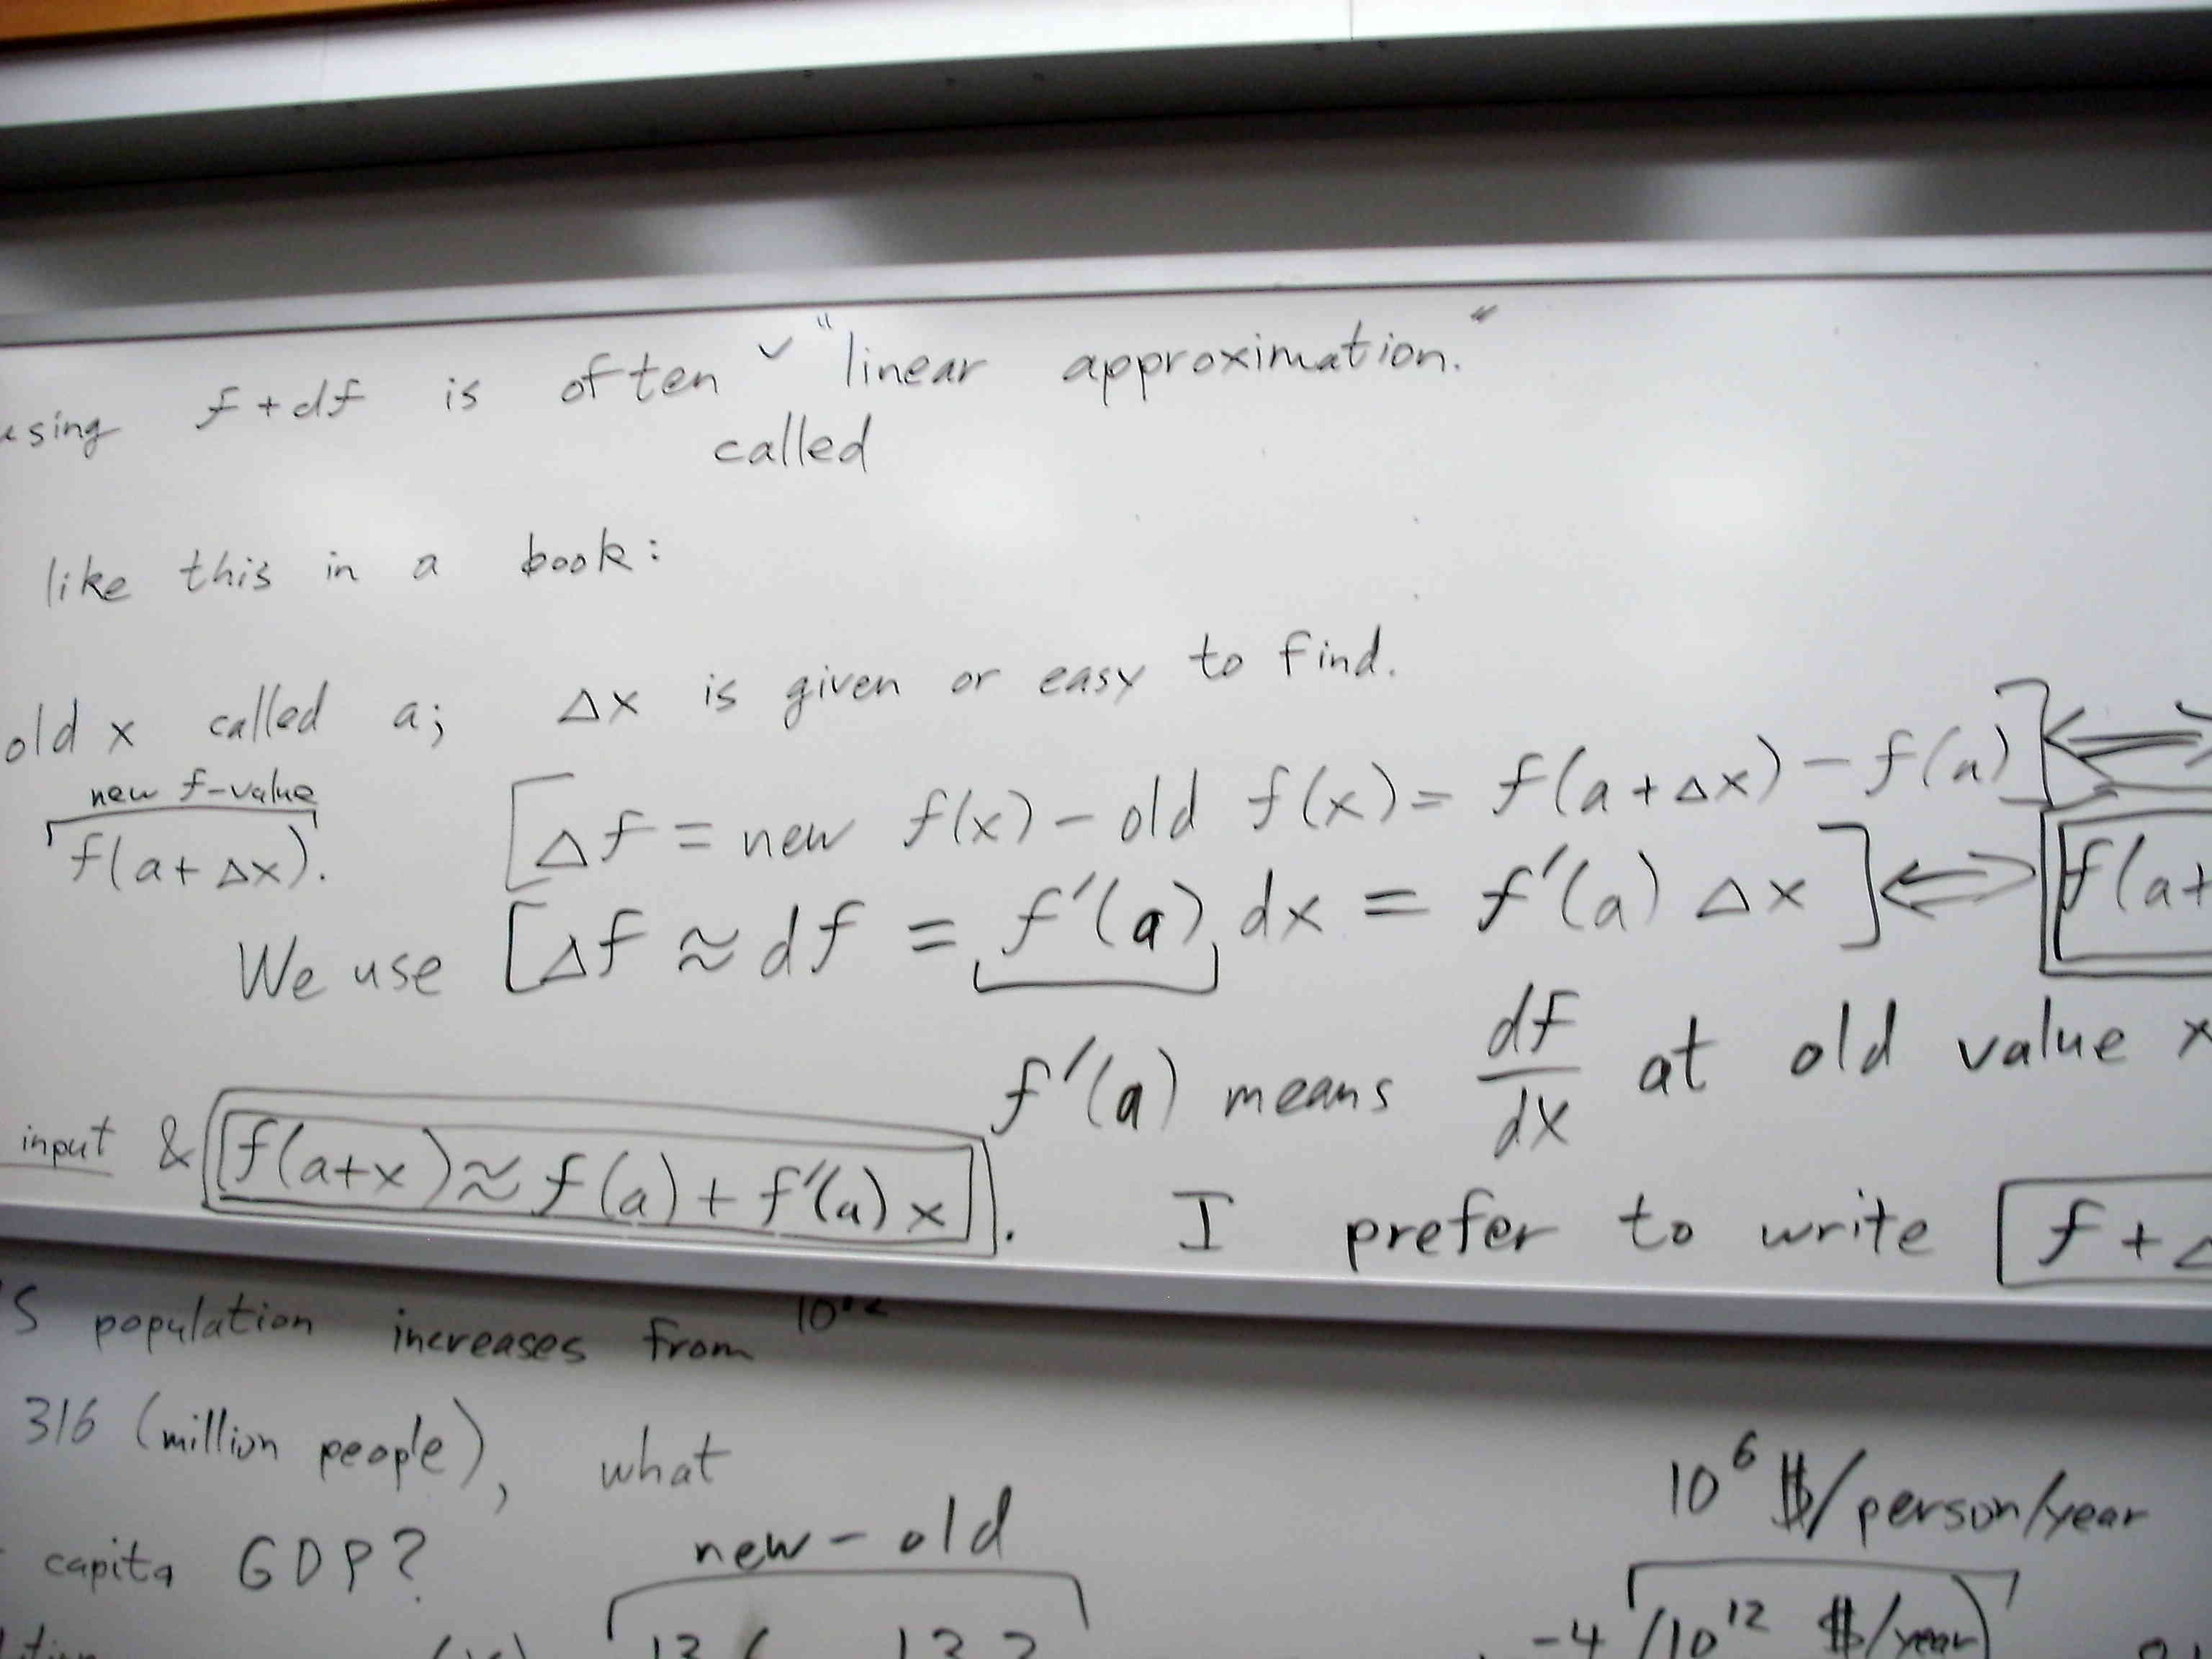 using f + df is often ˅ "linear approximation."
called
like this in a book:
old x called a; Δx is given or easy to find.
new f-value
f(a + Δx). [Δf = new f(x) - old f(x) = f(a + Δx) - f(a)] ⟺
We use [Δf ≈ df = f'(a) dx = f'(a) Δx] ⟺ f(a+
f'(a) means df/dx at old value x
input & f(a+x) ≈ f(a) + f'(a) x . I prefer to write f + Δ
S population increases from 10¹²
316 (million people), what
capita GDP? new - old 10⁶ $/person/year
-4 (10¹² $/year)